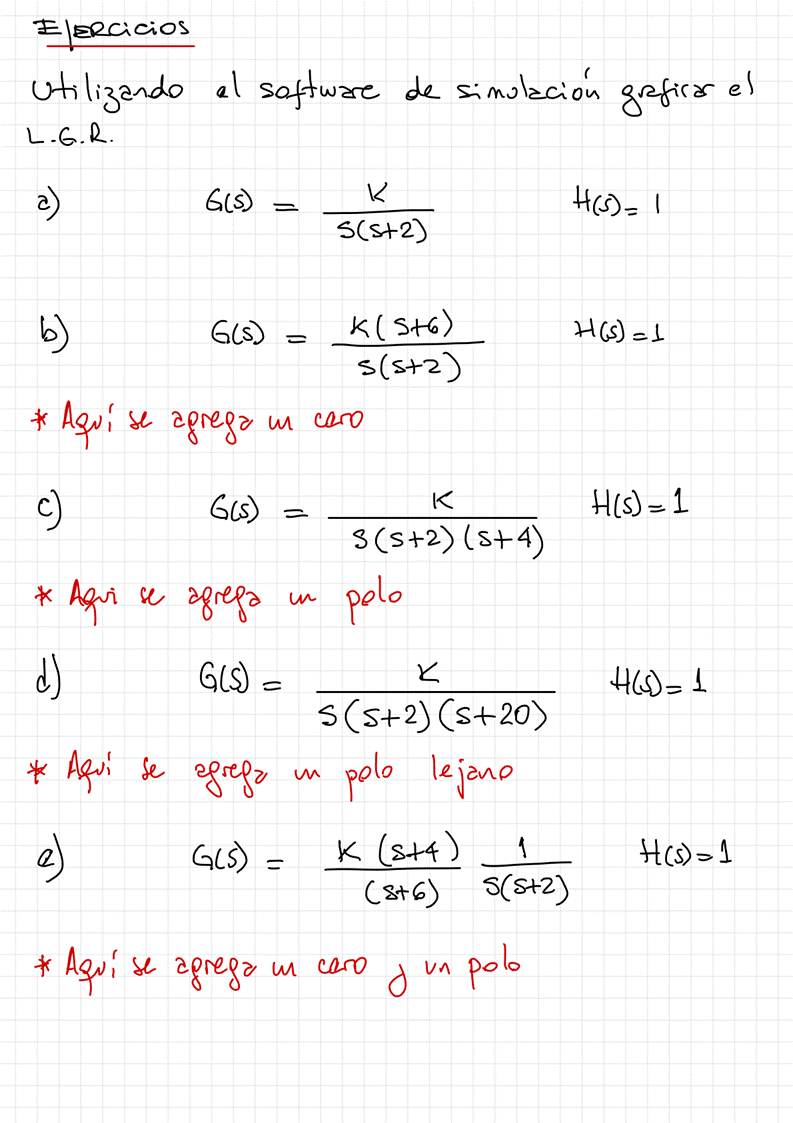 Ejercicios
Utilizando el software de simulación graficar el
L.G.R.
a) G(s) = K / S(S+2) H(s) = 1
b) G(s) = K(S+6) / S(S+2) H(s) = 1
* Aquí se agrega un cero
c) G(s) = K / S(S+2)(S+4) H(s) = 1
* Aqui se agrega un polo
d) G(s) = K / S(S+2)(S+20) H(s) = 1
* Aquí se agrega un polo lejano
e) G(s) = K(S+4) / (S+6) 1 / S(S+2) H(s) = 1
* Aquí se agrega un cero y un polo